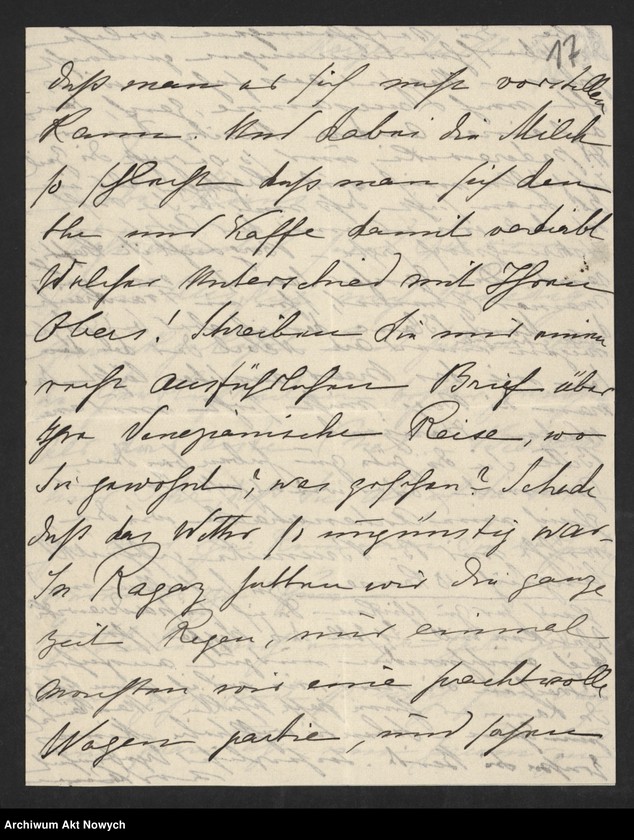 17
daß man es sich nicht vorstellen
kann. Und dabei die Milch
so schlecht daß man sich den
The und Kaffe damit verdirbt
Welcher Unterschied mit Ihrem
Obers! Schreiben Sie mir einen
recht ausführlichen Brief über
Ihre Venezianische Reise, wo
Sie gewohnt, was gesehen? Schade
daß das Wetter so ungünstig war.
In Ragaz hatten wir die ganze
Zeit Regen, nur einmal
machten wir eine prachtvolle
Wagen partie, und sahen
Archiwum Akt Nowych